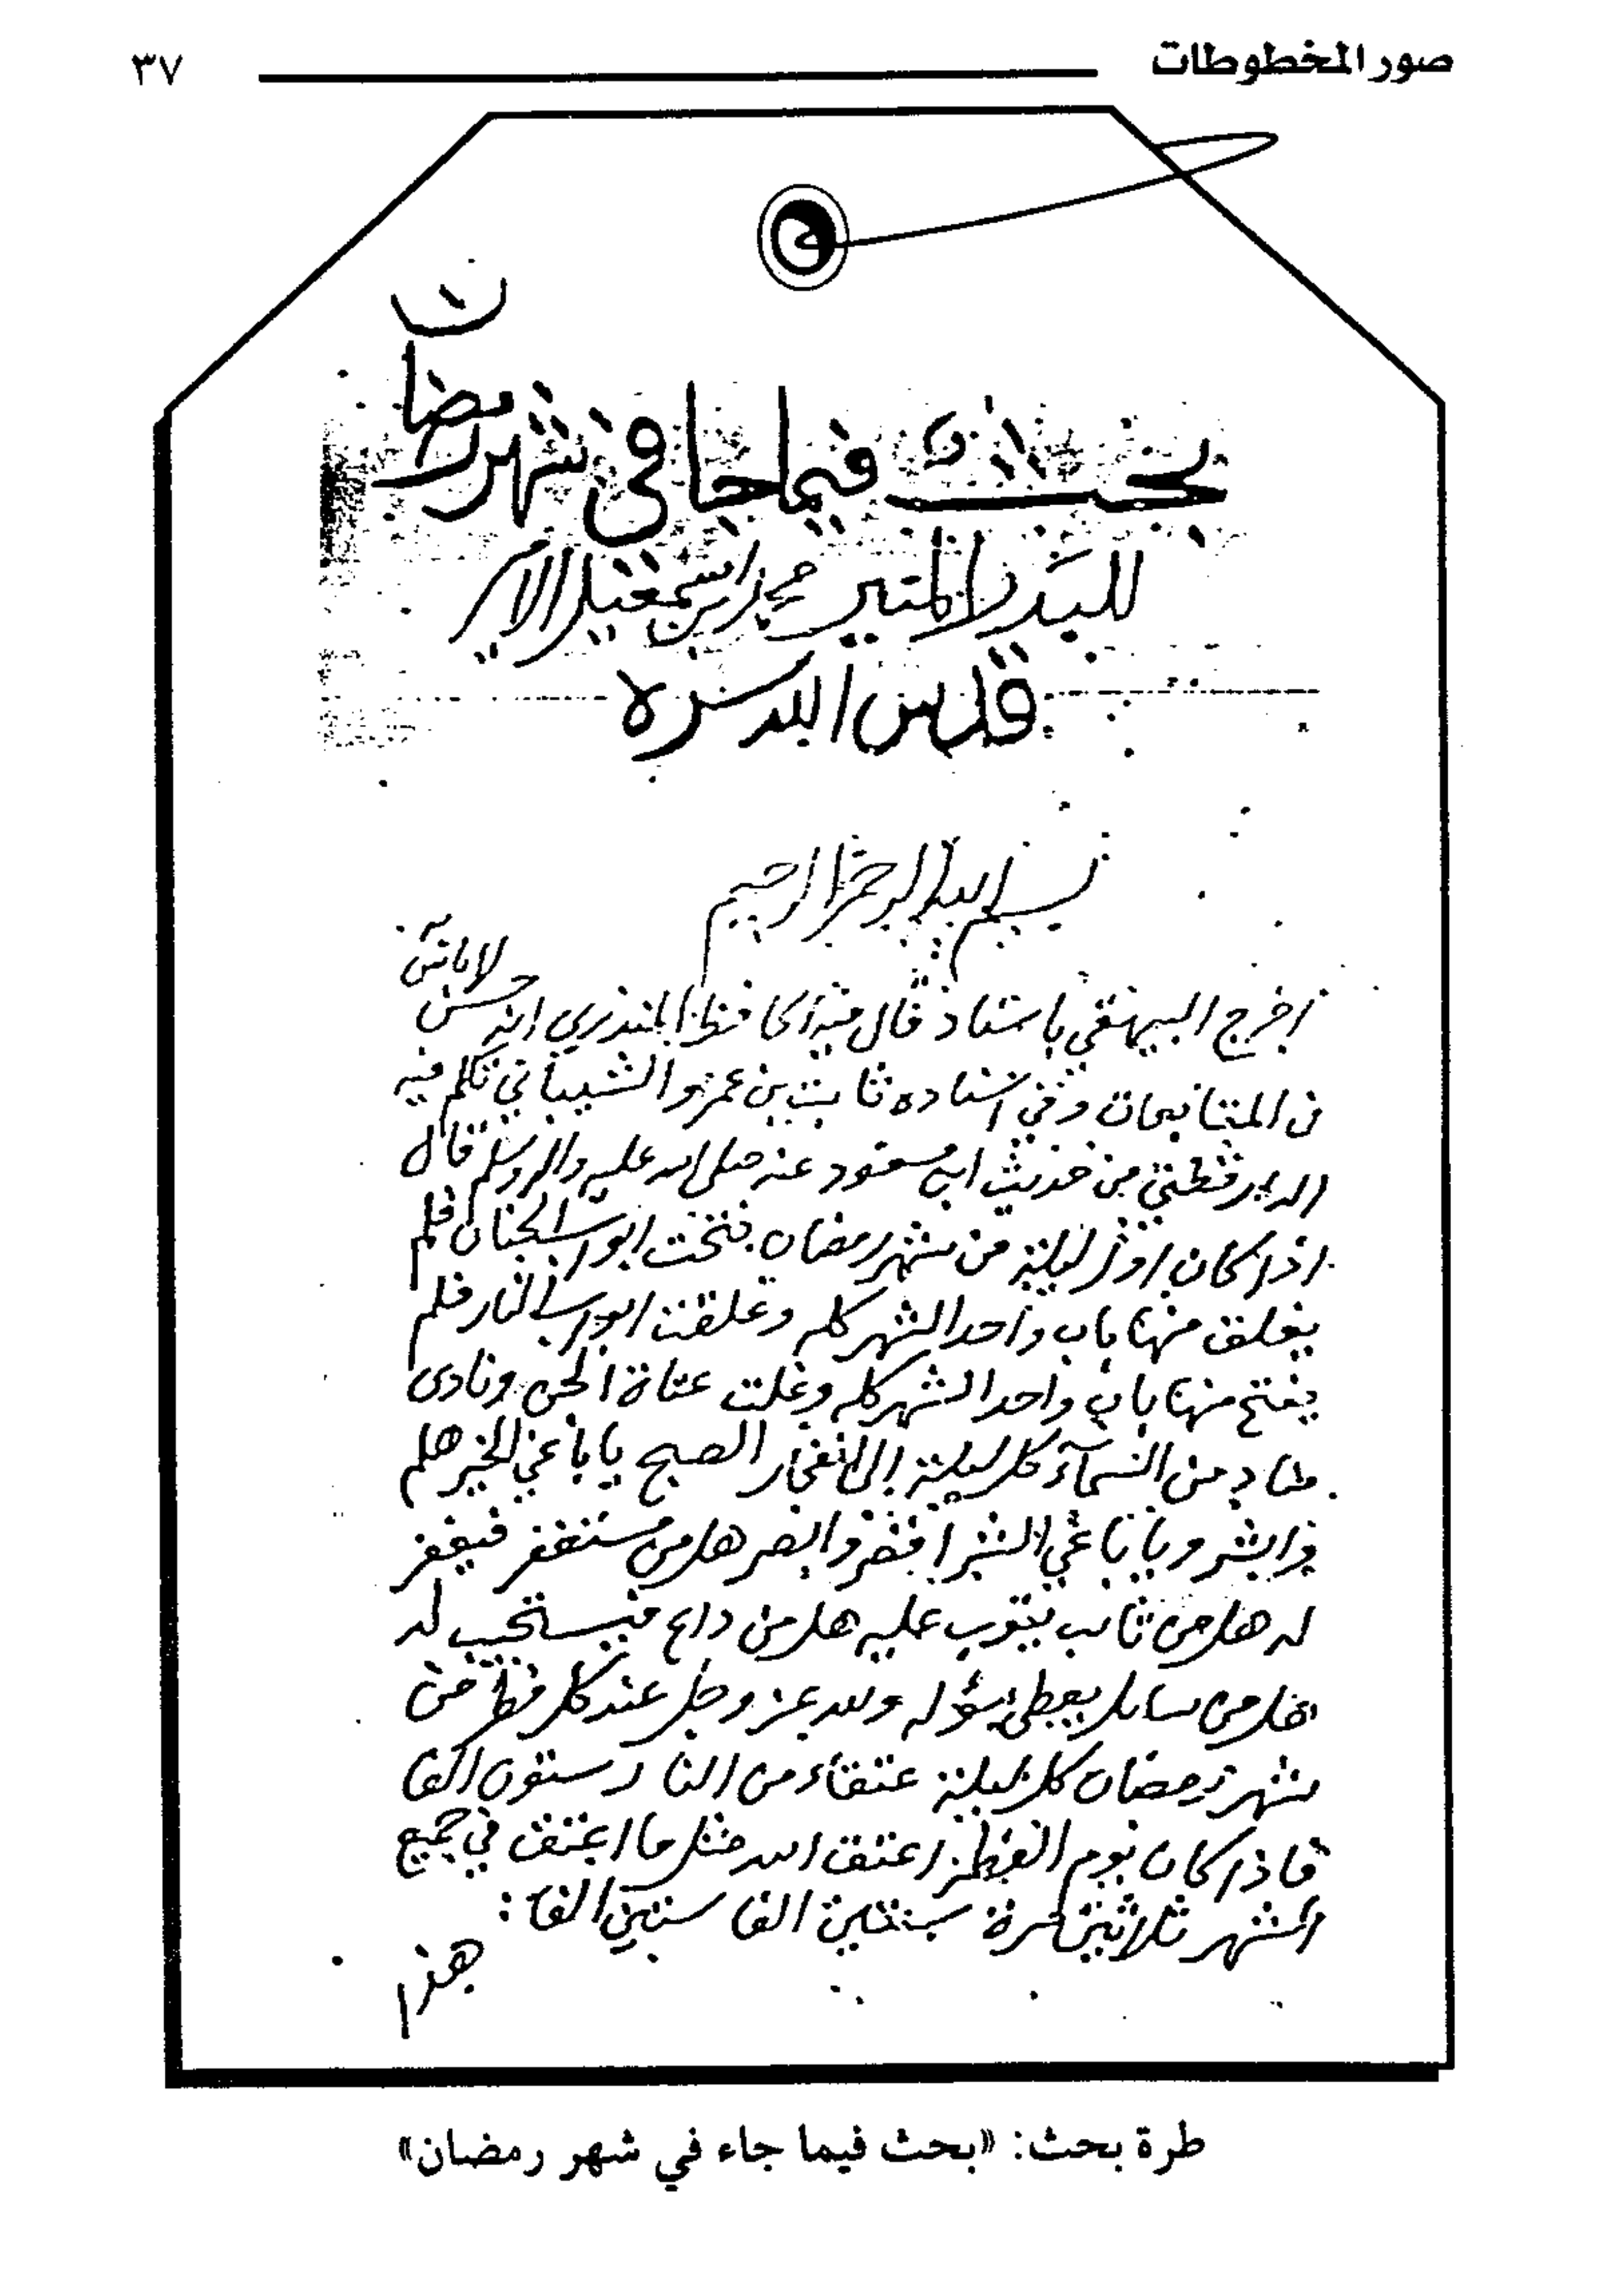 صور المخطوطات
٣٧
بحث فيما جا في شهر رمضان
للبدر المنير محمد بن اسمعيل الامير
قدس الله سره
بسم الله الرحمن الرحيم
اخرج البيهقي باسناد قال فيه الحافظ المنذري انه حسن لا باس
في المتابعات وفي اسناده ثابت بن عمرو الشيباني تكلم فيه
الدارقطني من حديث ابي مسعود عنه صلى الله عليه واله وسلم قال
اذا كان اول ليلة من شهر رمضان فتحت ابواب الجنان فلم
يغلق منها باب واحد الشهر كله وغلقت ابواب النار فلم
يفتح منها باب واحد الشهر كله وغلت عتاة الجن ونادى
مناد من السمآء كل ليلة إلى انفجار الصبح يا باغي الخير هلم
وابشر ويا باغي الشر اقصر وابصر هل من مستغفر فيغفر
له هل من تائب يتوب عليه هل من داع فيستجيب له
هل من سايل يعطى سؤله ولله عز وجل عند كل فطر من
شهر رمضان كل ليلة عتقاء من النار ستون الفا
فاذا كان يوم الفطر اعتق الله مثل ما اعتق في جميع
الشهر ثلاثين مرة ستين الفا ستين الفا :
هذا
طرة بحث: «بحث فيما جاء في شهر رمضان»